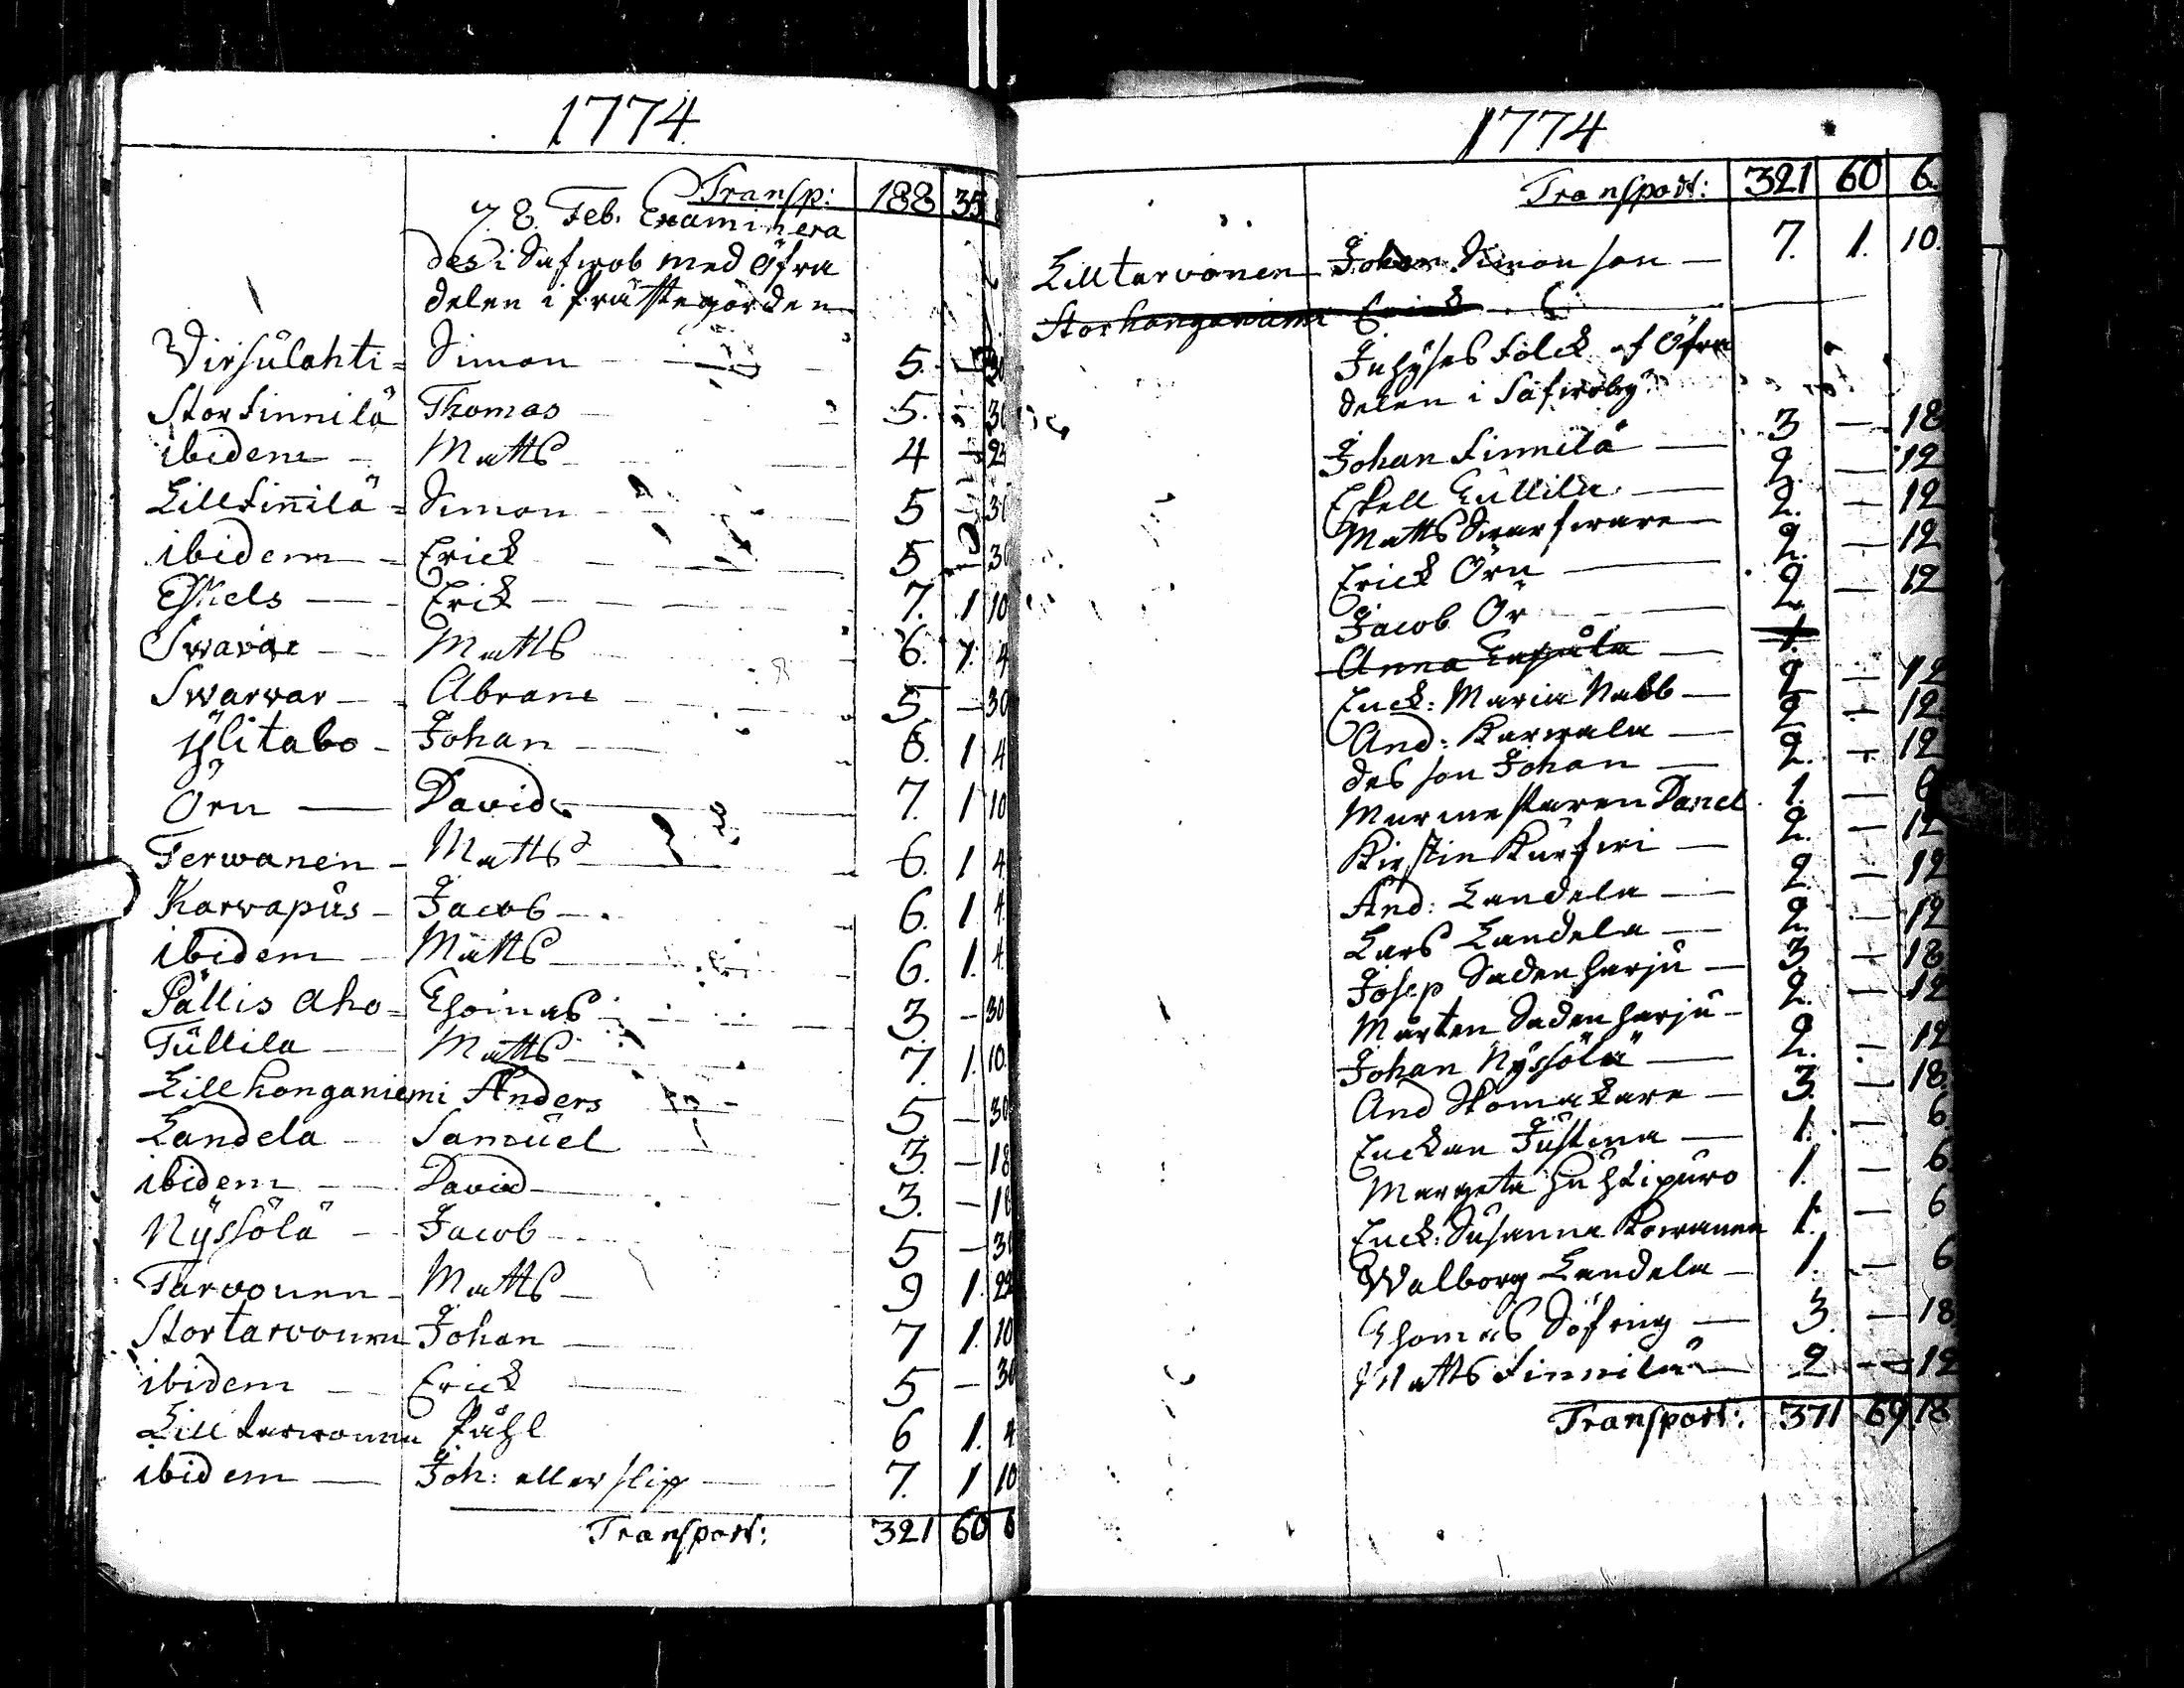 1774
Transp: 188 35
7. 8. Feb. Examinera
des i Safwob med Öfra
delen i Prästegorden
Virsülahti = Simon 5. — 30
Storfinnilä Thomas 5. — 30
ibidem Matts 4 — 24
Lillfinnilä = Simon 5 — 30
ibidem = Erick 5 — 30
Eskels Erick 7. 1 10
Swavar Matts 6. 1. 4
Swarvar Abram 5 — 30
Ÿlitabo Johan 6. 1 4
Örn David 7. 1 10
Terwanen Matts 6. 1 4
Karvapüs Jacob 6. 1. 4.
ibidem Matts 6. 1. 4.
Pällis aho = Thomas 3 — 30
Tüllila Matts 7. 1. 10.
Lillhonganiemi Anders 5 — 30
Landela Samuel 3. — 18
ibidem David 3. — 18
Nÿssölä Jacob 5 — 30
Tarvonen Matts 9 1. 22
Stortarvonen Johan 7 1. 10
ibidem Erick 5 — 30
Lilltarvonen Påhl 6 1. 4
ibidem Joh: eller Slip 7. 1 10
Transport: 321 60 6
1774
Transport: 321 60 6.
Lilltarvonen Johan Simonson 7. 1. 10.
Storhonganiemi Erick
Inhÿses folck af Öfra
delen i Safwobÿ
Johan Finnilä 3 — 18
Eskell Tüllila 2. — 12
Matts Swarfware 2. — 12
Erick Örn 2. — 12
Jacob Ör 2. — 12
Anna 1.
Enck: Maria Nabb 2 — 12
And: Karwala 2 — 12.
des son Johan 2. — 12
Murmestaren Danel 1. — 6
Kirstin Kürfwi 2. — 12
And: Landela 2. — 12
Lars Landela 2. — 12
Josep Sadenharjü 3 — 18
Mårten Sadenharjü 2. — 12
Johan Nÿssölä 2. — 12
And Skomakare 3. — 18.
Enckan Jüstina 1. — 6.
Margeta Huhtipüro 1. — 6
Enck: Süsanna Kowanen 1. — 6
Walborg Landela 1. — 6
Thomas Söfring 3. — 18.
Matts Finnilä 2 — 12
Transport: 371 69 18